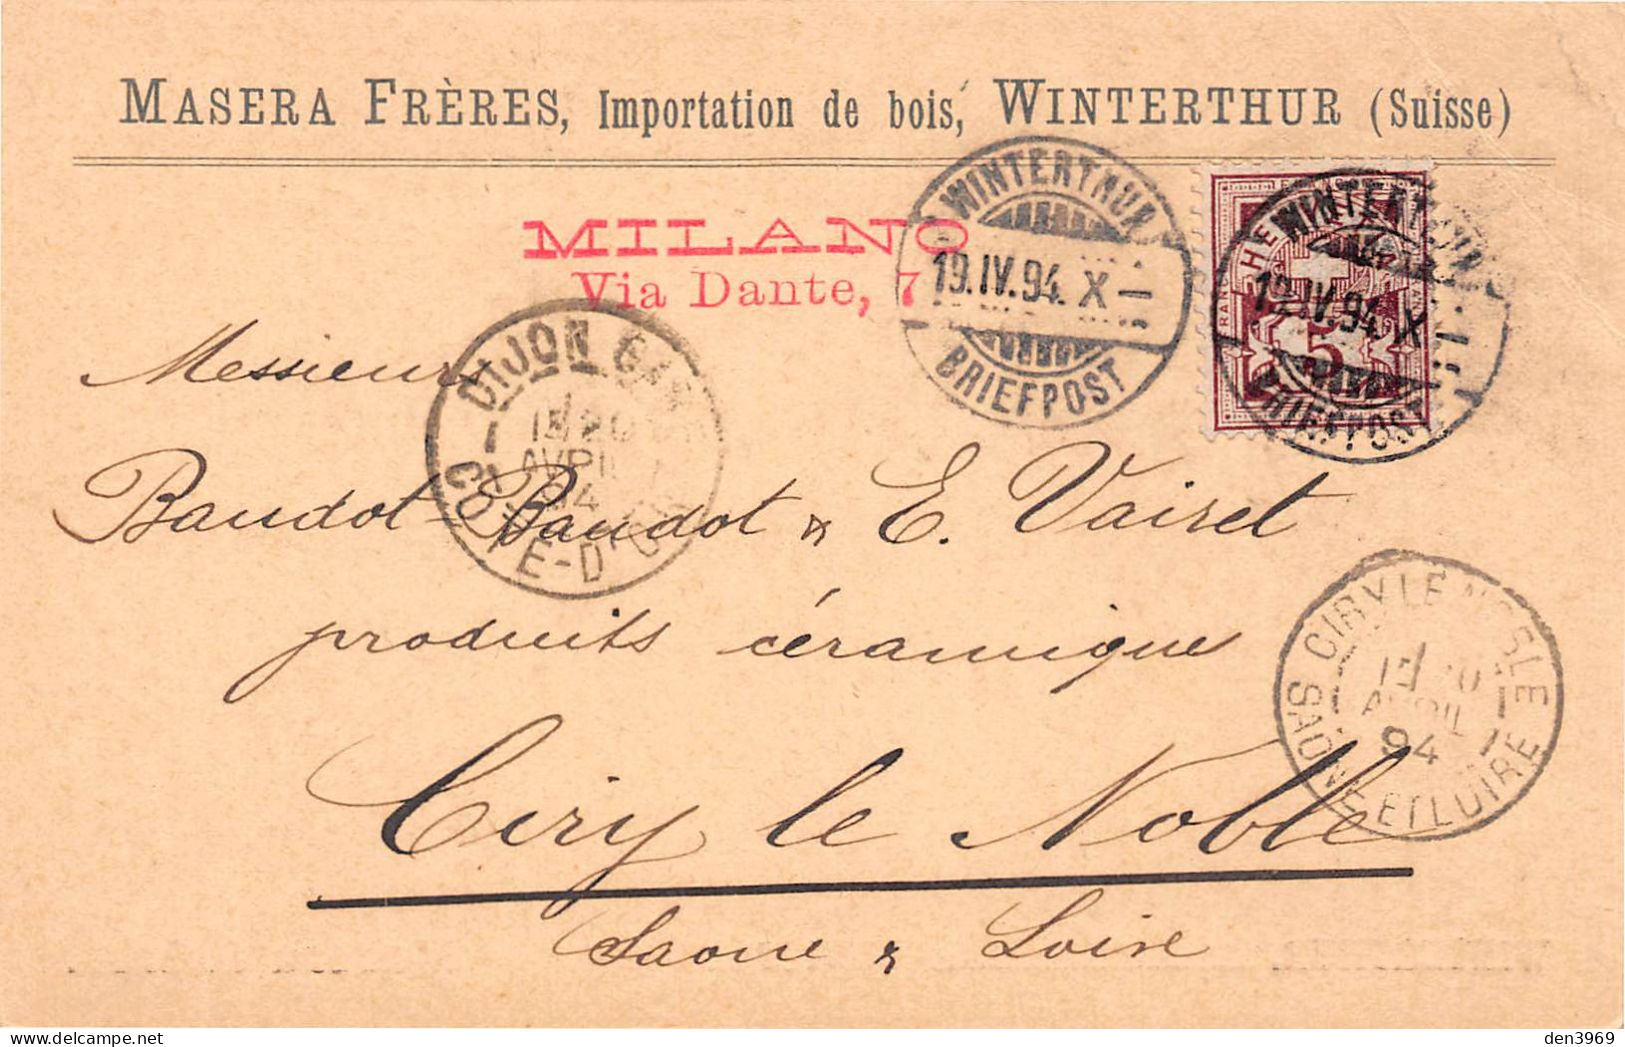 MASERA FRÈRES, Importation de bois, WINTERTHUR (Suisse)
MILANO
Via Dante, 7
WINTERTHUR
19.IV.94. X
BRIEFPOST
WINTERTHUR
19.IV.94. X
BRIEFPOST
HE
FRANCO
5
DIJON GARE
20
AVRIL
94
CÔTE-D'OR
Messieurs
Baudot-Baudot & E. Vairet
produits céramique
Ciry le Noble
Saone & Loire
CIRY LE NOBLE
20
AVRIL
94
SAÔNE ET LOIRE
den3969